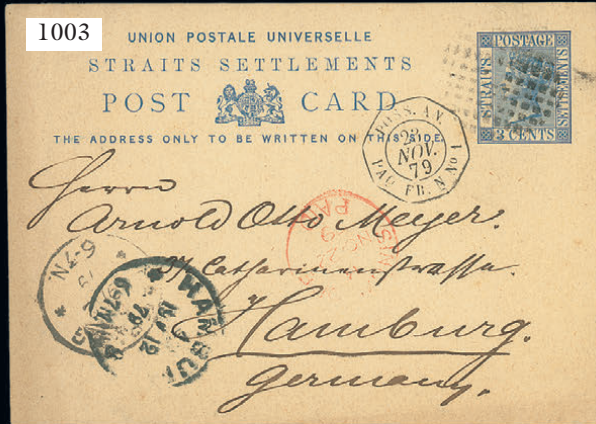 1003
UNION POSTALE UNIVERSELLE
STRAITS SETTLEMENTS
POST CARD
THE ADDRESS ONLY TO BE WRITTEN ON THIS SIDE.
STRAITS
POSTAGE
SETTLEMENTS
3 CENTS
POSS. AN.
23
NOV.
79
PAQ. FR. N No 1
Herrn
Arnold Otto Meyer.
37 Catharinenstrasse.
Hamburg.
Germany.
PAID
HAMBU
6-7N